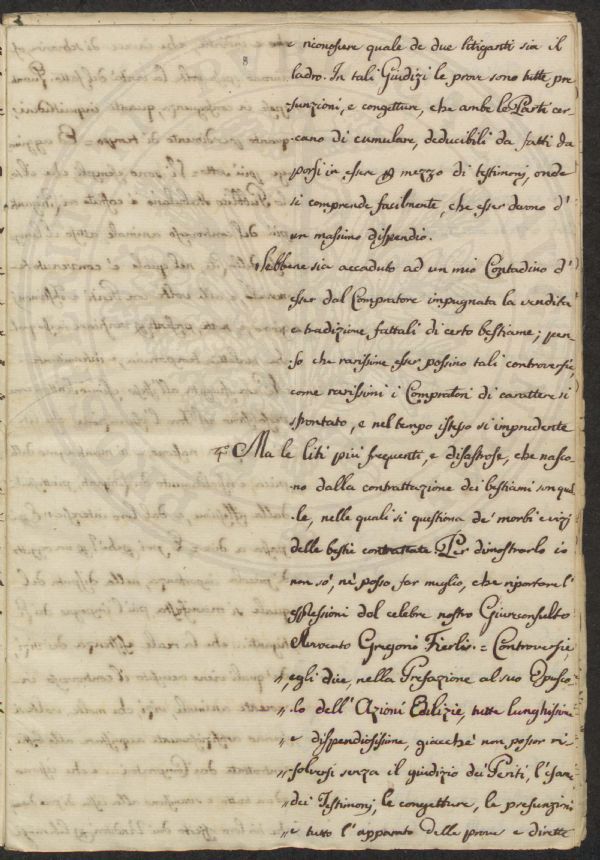 8
e riconoscere quale de due litiganti sia il
ladro. In tali Giudizi le prove sono tutte pre
sunzioni, e congetture, che ambe le Parti cer-
cano di cumulare, deducibili da fatti da
porsi in essere p mezzo di testimonj, onde
si comprende facilmente, che esser devono d'
un massimo dispendio.
Sebbene sia accaduto ad un mio Contadino d'
esser dal Compratore impugnata la vendita
e tradizione fattali di certo bestiame; pen-
so che rarissime esser possino tali controversie
come rarissimi i Compratori di carattere sì
sfrontato, e nel tempo istesso sì imprudente
4° Ma le liti più frequenti, e disastrose, che nasco
no dalla contrattazione dei bestiami son quel
le, nelle quali si questiona de' morbi e vizj
delle bestie contrattate. Per dimostrarlo io
non so, nè posso far meglio, che riportare l'
espressioni del celebre nostro Giureconsulto
Avvocato Gregorio Fierli. = Controversie,
„ egli dice, nella Prefazione al suo Opusco-
lo dell'Azioni Edilizie, tutte lunghissime
„ e dispendiosissime, giacchè non posson ri
„ solversi senza il giudizio dei Periti, l'esame
„ dei Testimonj, le congetture, le presunzioni
„ e tutto l'apparato delle prove e dirette